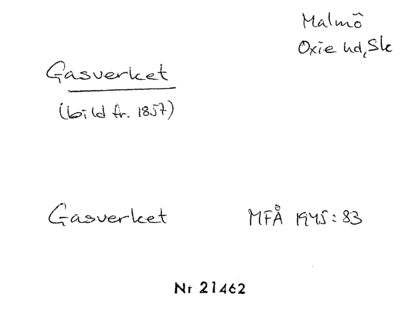 Malmö
Oxie hd, Sk
Gasverket
(bild fr. 1857)
Gasverket MFÅ 1945:83
Nr 21462